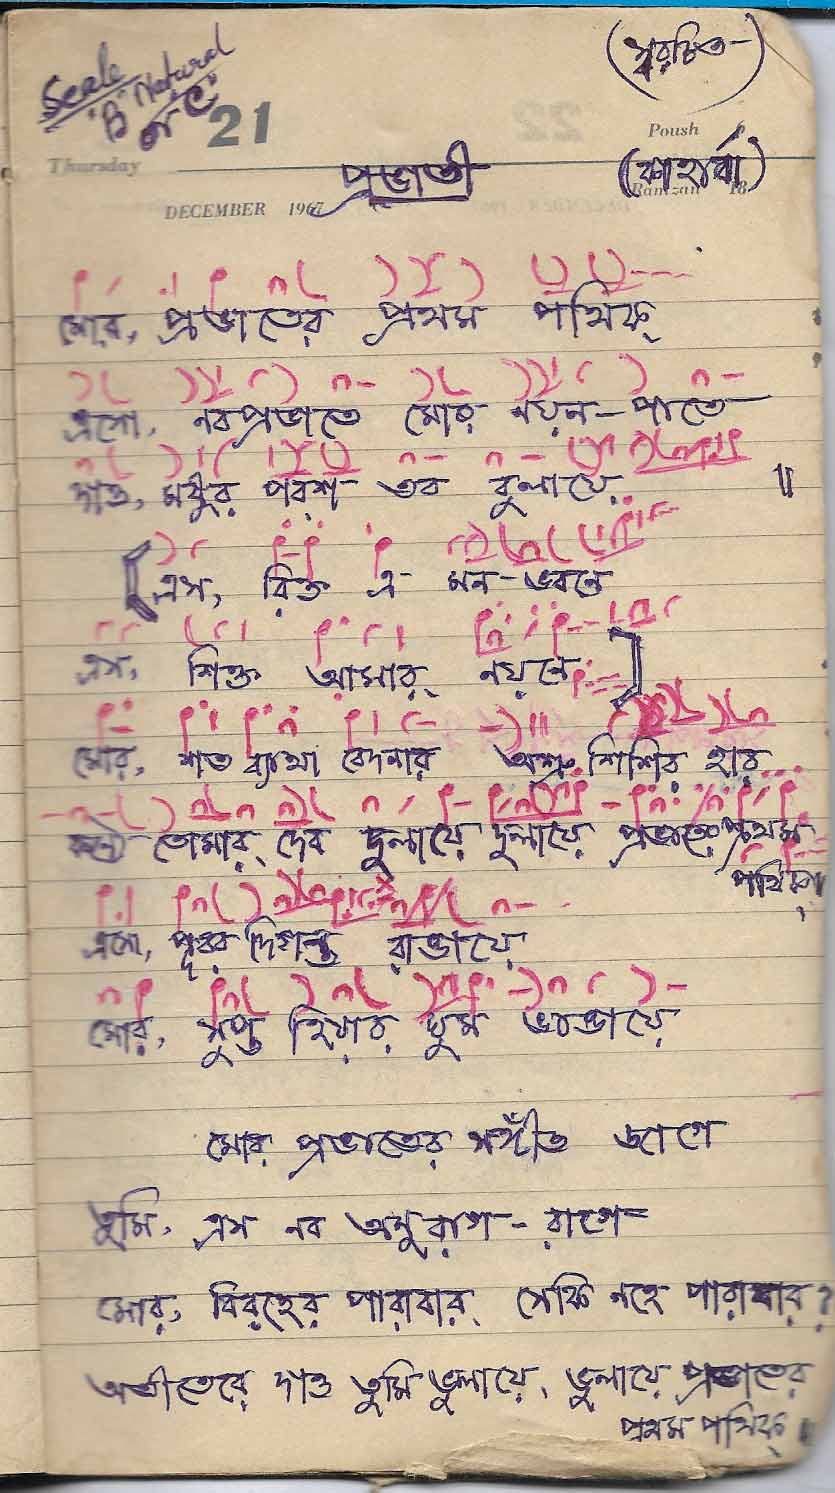 Scale
"B" Natural
or "C"
(স্বরচিত-)
21
Poush 6
Thursday
প্রভাতী
(কাহার্বা)
Ramzan 18
DECEMBER 1967
মোর, প্রভাতের প্রথম পথিক্
এসো, নবপ্রভাতে মোর নয়ন-পাতে
দাও, মধুর পরশ তব বুলায়ে ॥
[এস, রিক্ত এ মন-ভবনে
এস, শিক্ত আমার্ নয়নে]
মোর, শত ব্যাথা বেদনার অশ্রু শিশির হার
তোমার্ দেব দুলায়ে দুলায়ে প্রভাতের প্রথম
পথিক
এসো, পূরব দিগন্ত রাঙায়ে
মোর, সুপ্ত হিয়ার ঘুম ভাঙায়ে
মোর প্রভাতের সঙ্গীত জাগে
তুমি, এস নব অনুরাগ-রাগে
মোর, বিরহের পারাবার্ সেকি নহে পারাবার?
অতীতেরে দাও তুমি ভুলায়ে, ভুলায়ে প্রভাতের
প্রথম পথিক্ ॥